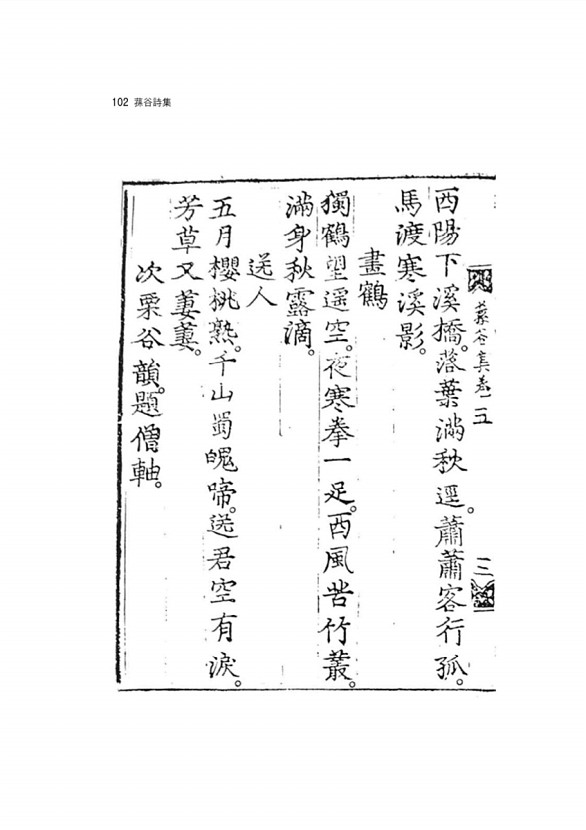 102 蓀谷詩集
蓀谷集卷之五
三
西陽下溪橋。落葉滿秋逕。蕭蕭客行孤。
馬渡寒溪影。
畫鶴
獨鶴望遥空。夜寒拳一足。西風苦竹叢。
滿身秋露滴。
送人
五月櫻桃熟。千山蜀魄啼。送君空有淚。
芳草又萋萋。
次栗谷韻。題僧軸。